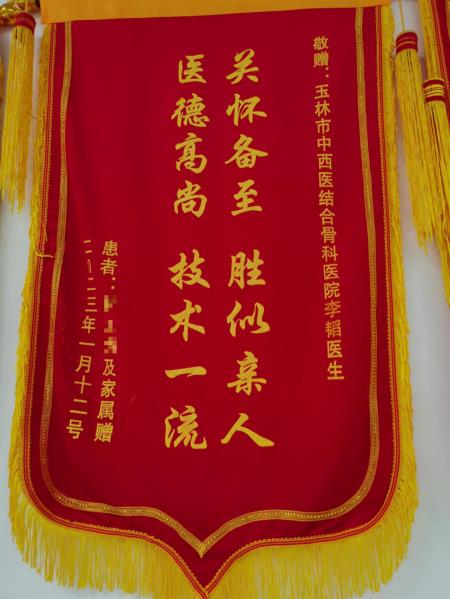 敬赠：玉林市中西医结合骨科医院李韬医生
关怀备至 胜似亲人
医德高尚 技术一流
患者：及家属赠
二〇二三年一月十二号